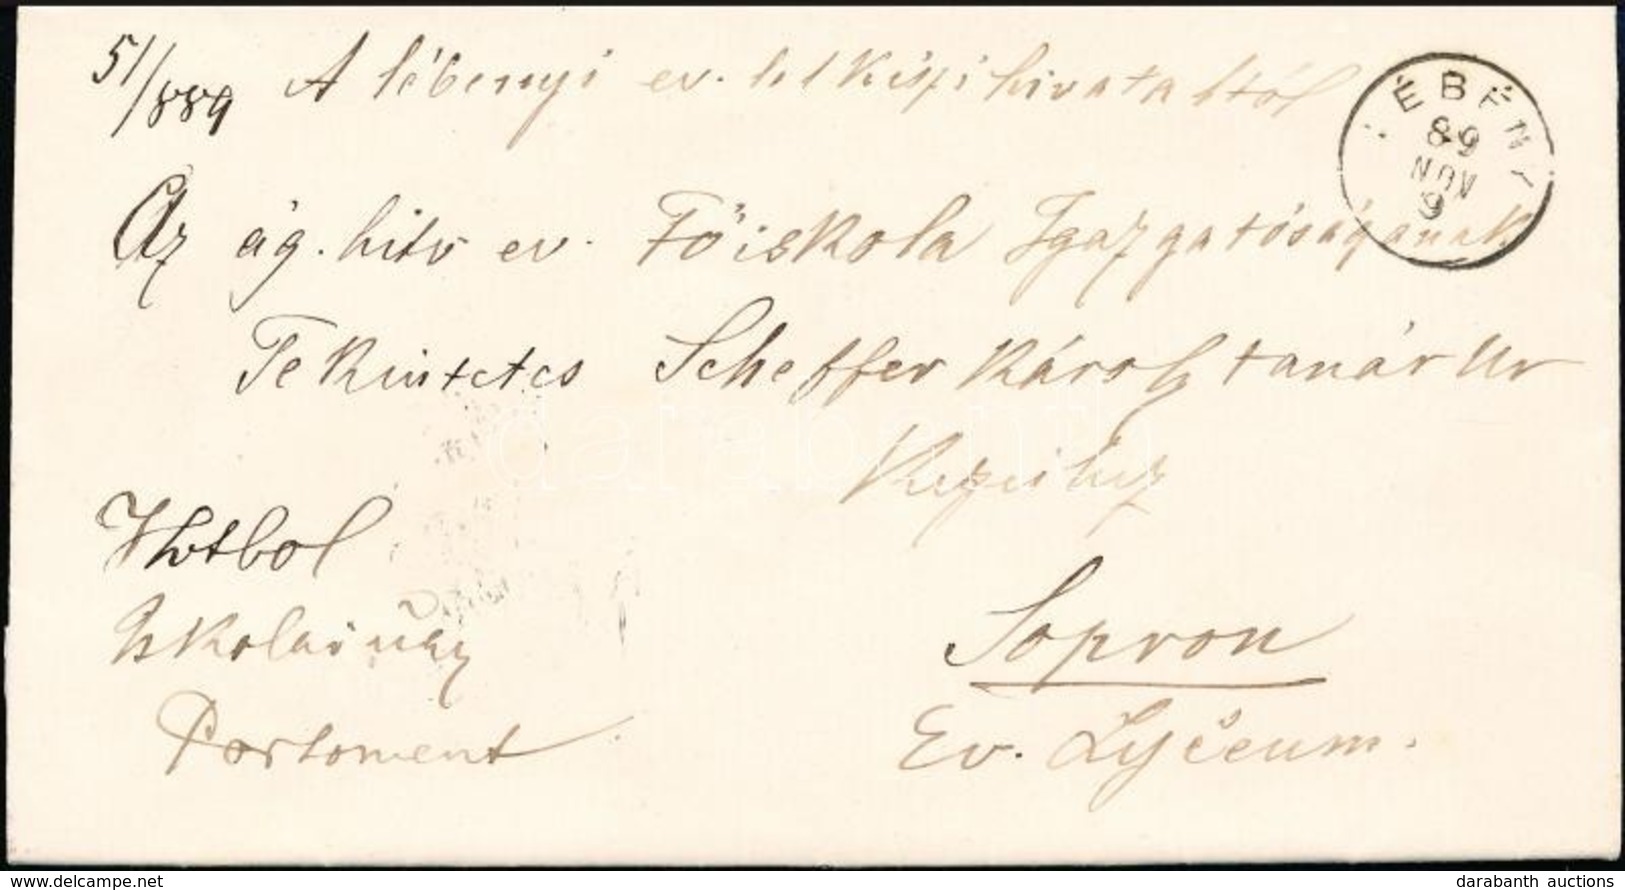 51/889 A lébenyi ev. lelkészi hivataltól
LÉBÉNY
89
NOV
9
Az ág. hitv ev. Főiskola Igazgatóságának
Tekintetes Scheffer Károly tanár Ur
Kezeihez
darabanth
Hivatbol
Iskolai ügy
Portoment
Sopron
Ev. Lyceum.
www.delcampe.net
darabanth auctions